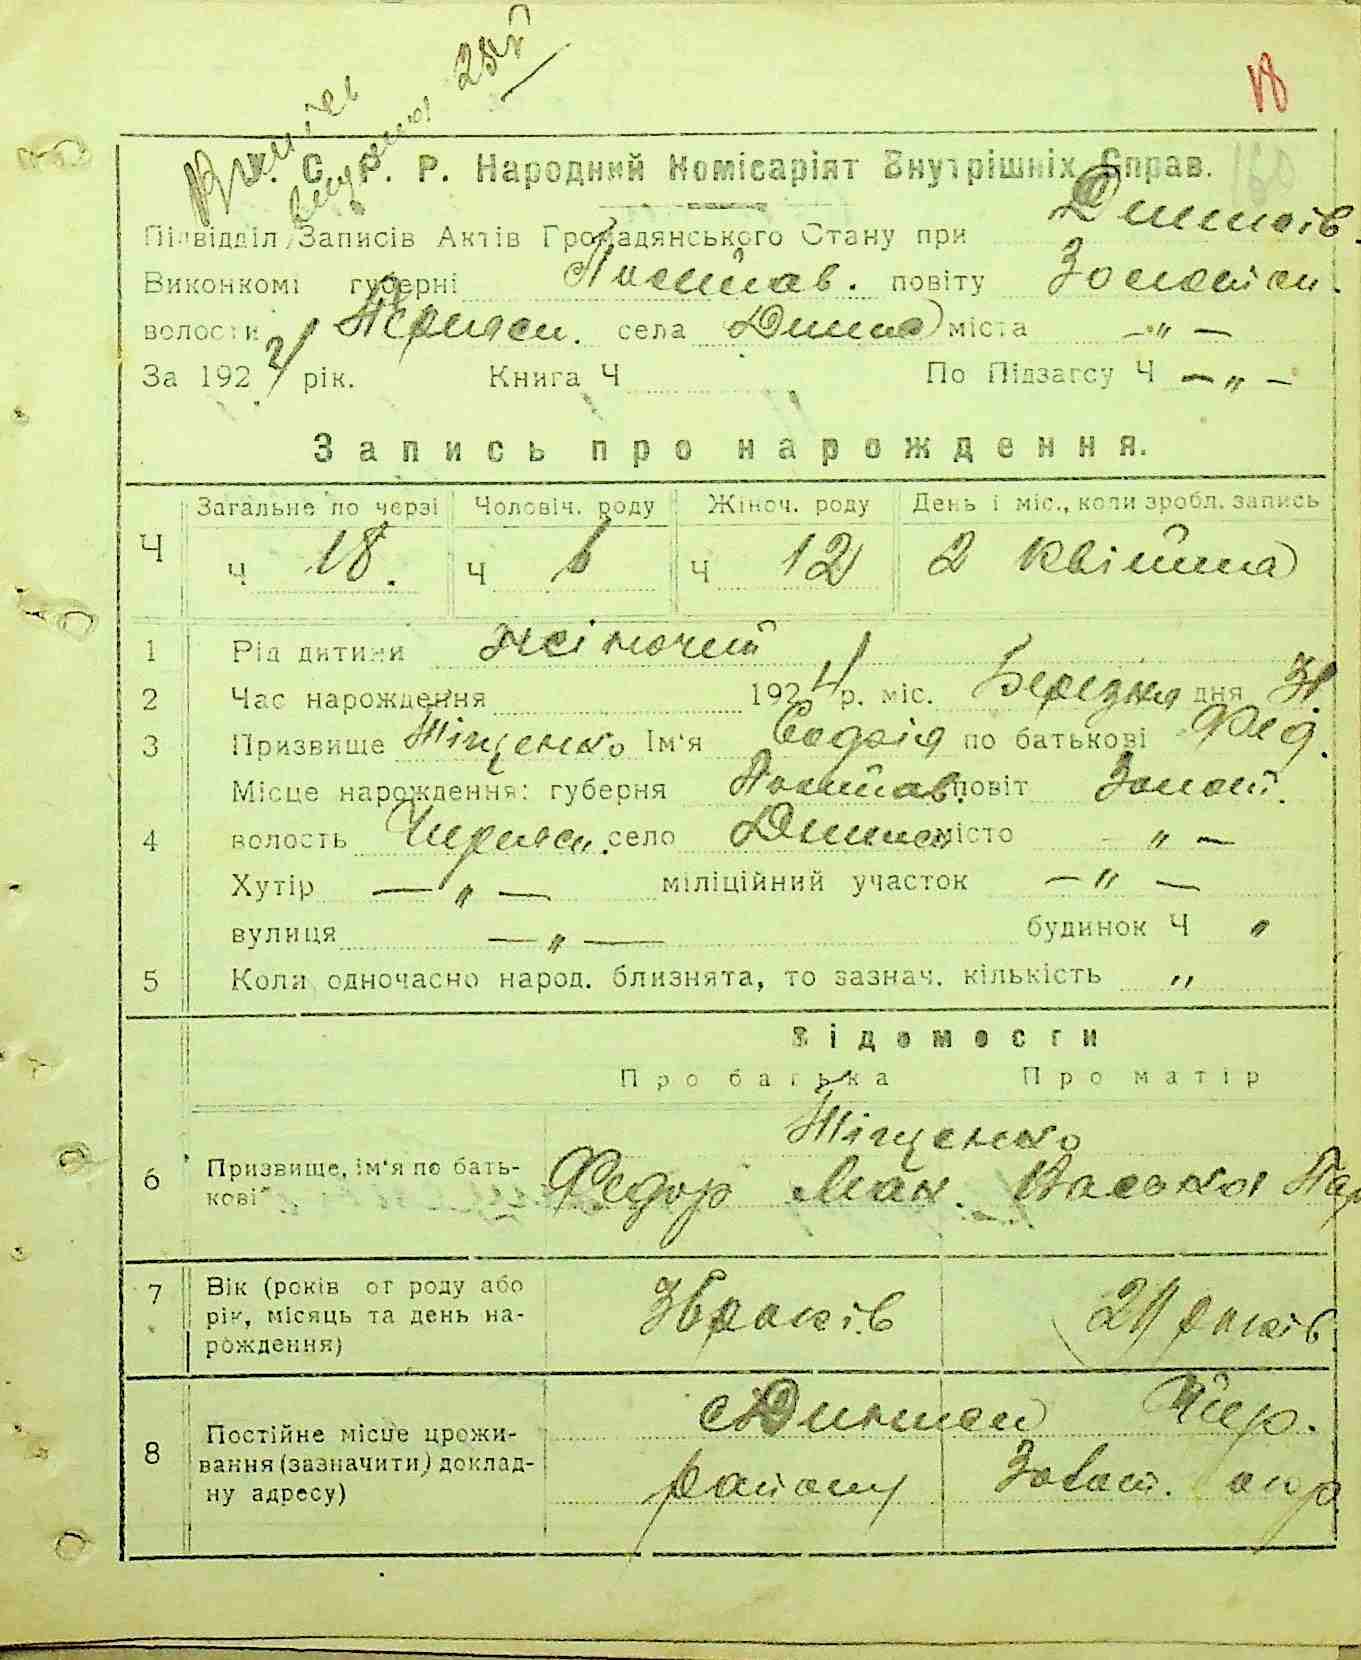 18
У. С. Р. Р. Народний Комісаріят Внутрішніх Справ.
Підвідділ Записів Актів Громадянського Стану при
Виконкомі губерні Полтав. повіту Золотон.
волости села міста -„-
За 1924 рік. Книга Ч По Підзагсу Ч -„-
Запись про нарождення.
Загальне по черзі Чоловіч. роду Жіноч. роду День і міс., коли зробл. запись
Ч Ч 18. Ч 6 Ч 12 2 квітня
1 Рід дитини жіночий
2 Час нарождення 1924 р. міс. Березня дня 31
3 Призвище Тіщенко Ім'я по батькові Фед.
Місце нарождення: губерня Полтав. повіт Золот.
4 волость село місто „ -
Хутір -„- міліційний участок -„-
вулиця -„- будинок Ч „
5 Коли одночасно народ. близнята, то зазнач. кількість „
Відомости
Про батька Про матір
Тіщенко
6 Призвище, ім'я по бать-
кові
Федор Ман.
7 Вік (років от роду або
рік, місяць та день на-
рождення)
36 років 24 років
8 Постійне місце прожи-
вання (зазначити) доклад-
ну адресу)
району Золот. окр.